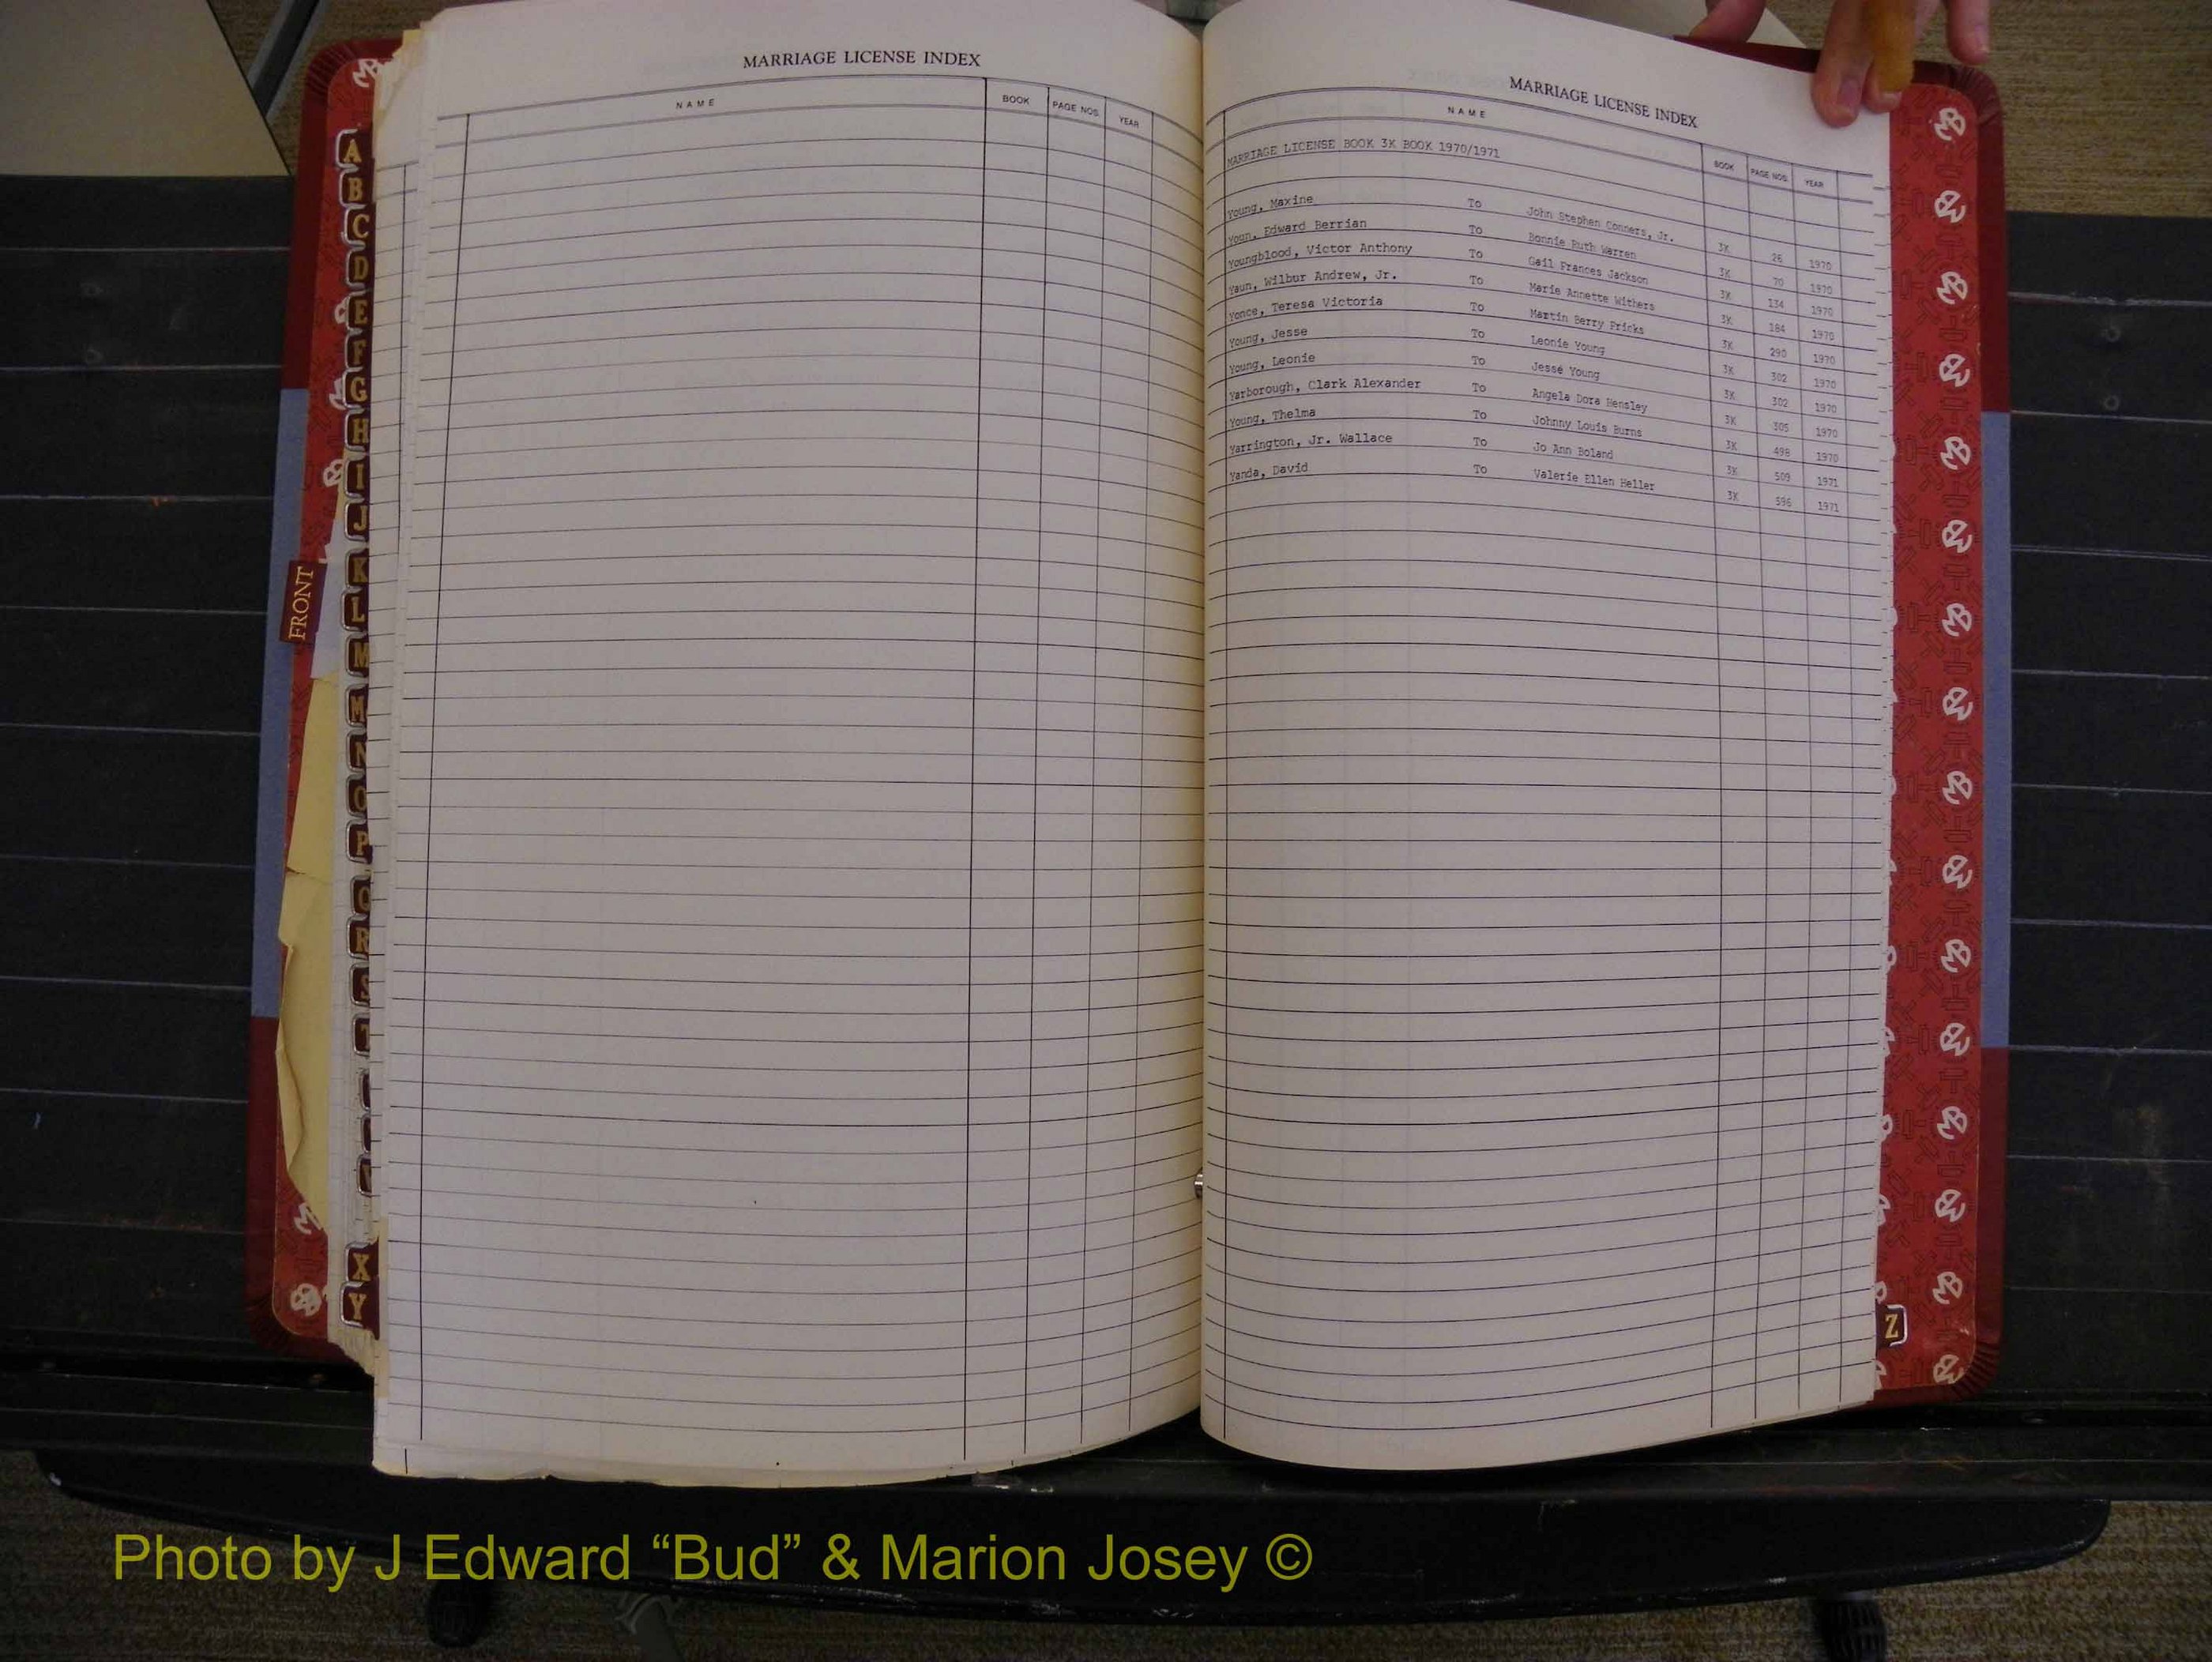 MARRIAGE LICENSE INDEX
NAME BOOK PAGE NOS. YEAR
MARRIAGE LICENSE INDEX
NAME BOOK PAGE NOS. YEAR
MARRIAGE LICENSE BOOK 3K BOOK 1970/1971
Young, Maxine To John Stephen Conners, Jr. 3K 26 1970
Youn, Edward Berrian To Bonnie Ruth Warren 3K 70 1970
Youngblood, Victor Anthony To Gail Frances Jackson 3K 134 1970
Yaun, Wilbur Andrew, Jr. To Marie Annette Withers 3K 184 1970
Yonce, Teresa Victoria To Martin Berry Fricks 3K 290 1970
Young, Jesse To Leonie Young 3K 302 1970
Young, Leonie To Jesse Young 3K 302 1970
Yarborough, Clark Alexander To Angela Dora Hensley 3K 305 1970
Young, Thelma To Johnny Louis Burns 3K 498 1970
Yarrington, Jr. Wallace To Jo Ann Boland 3K 509 1971
Yanda, David To Valerie Ellen Heller 3K 596 1971
A
B
C
D
E
F
G
H
I
J
K
L
M
M
N
O
P
Q
R
S
T
X
Y
Z
FRONT
Photo by J Edward “Bud” & Marion Josey ©